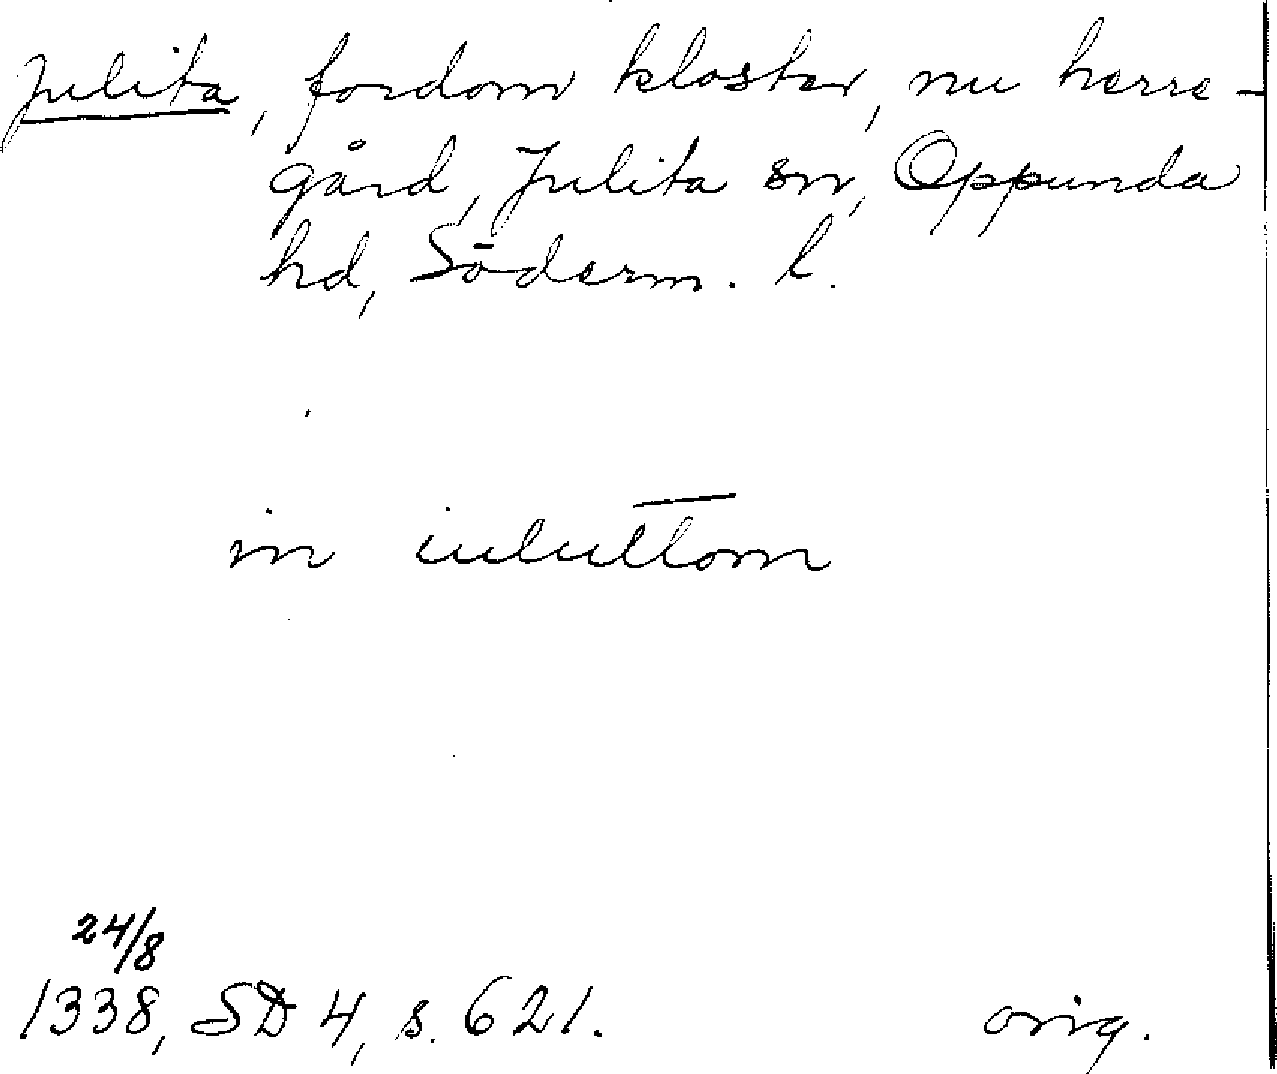 Julita, fordom kloster, nu herre-
gård, Julita sn, Oppunda
hd, Söderm. l.
in iulut̅t̅om
24/8
1338, SD 4, s. 621.
orig.